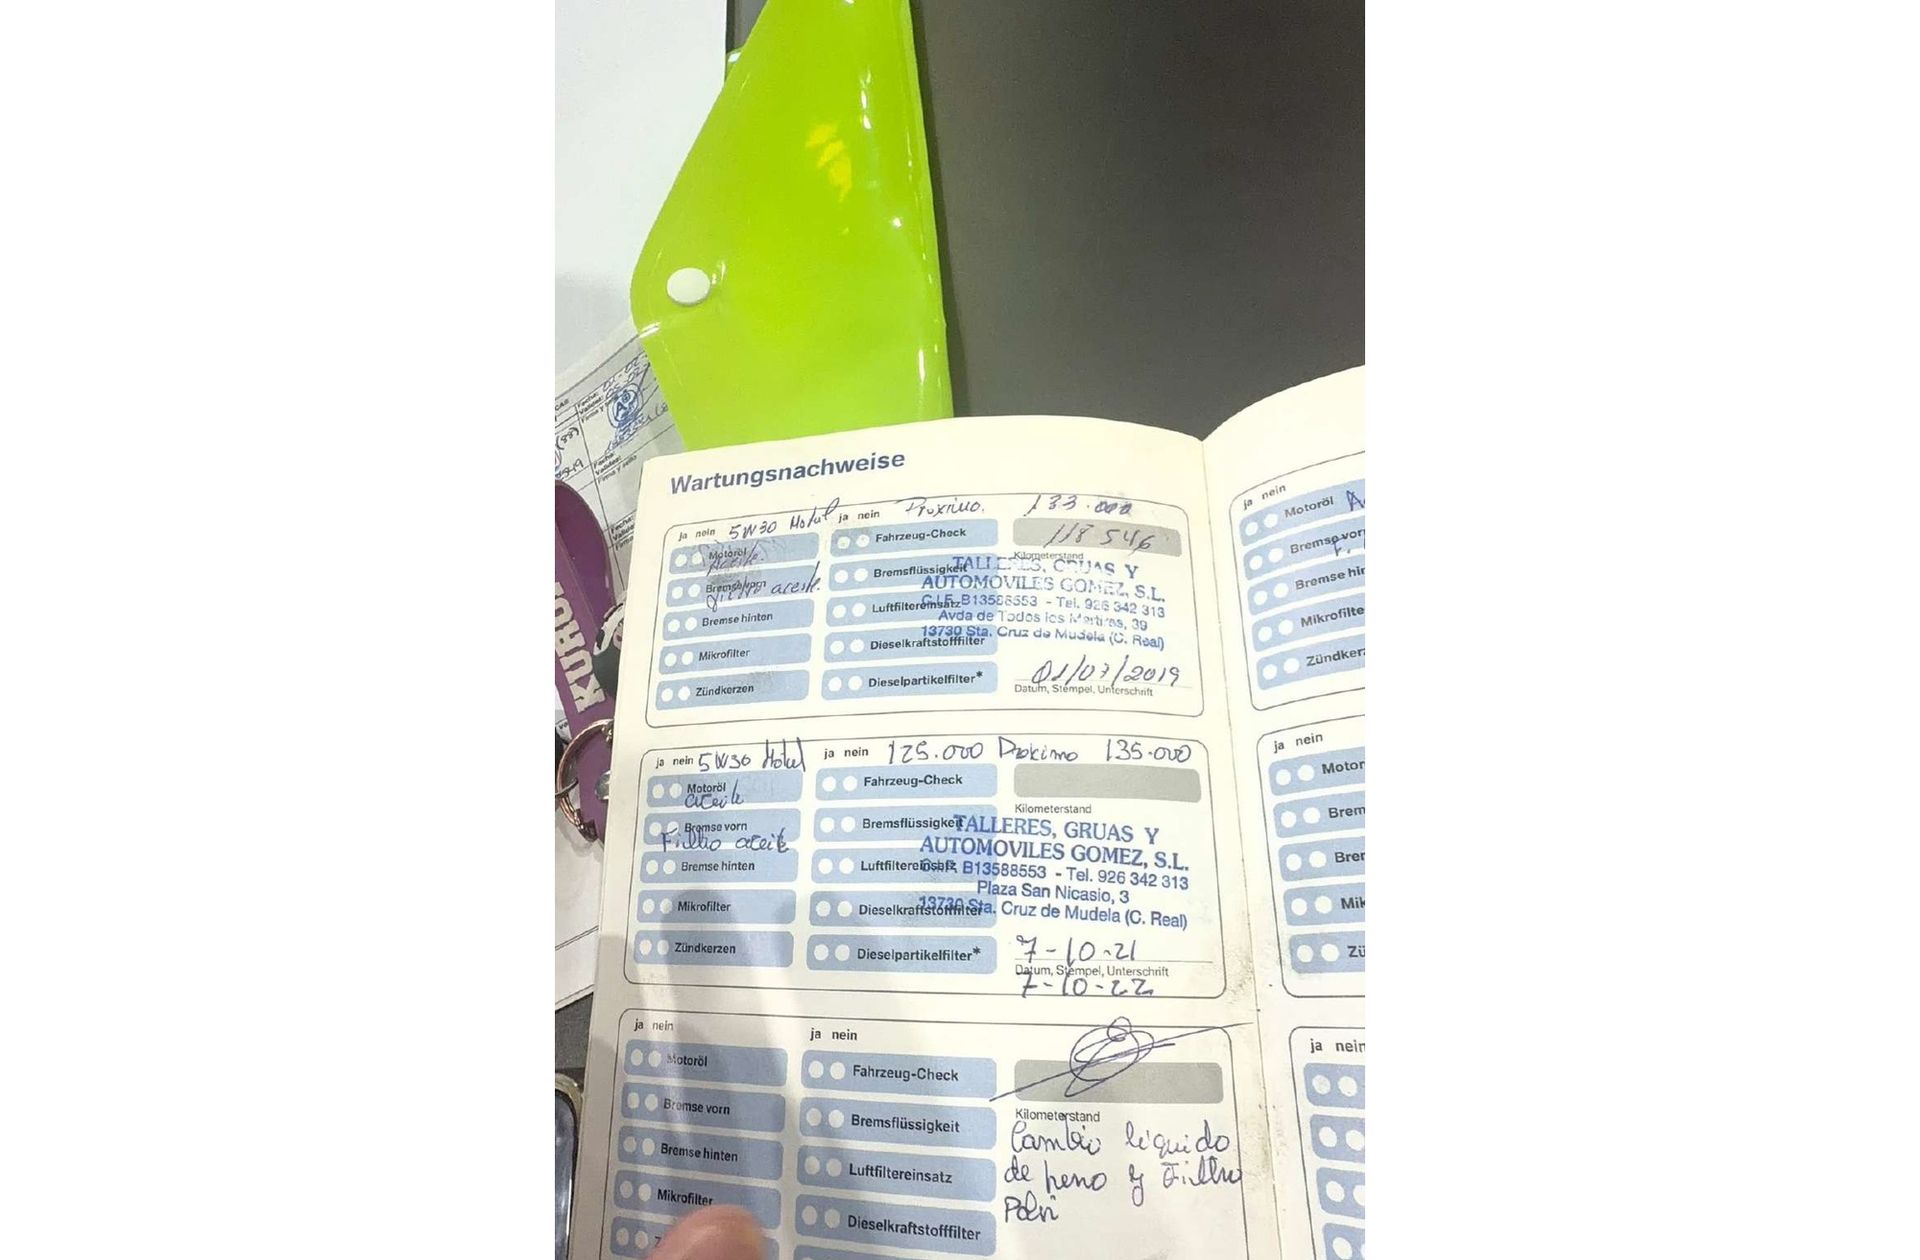 Wartungsnachweise
ja nein 5W30 Motul ja nein Proximo. 133.000
Motoröl Fahrzeug-Check 118 546
Aceite. Kilometerstand
Bremse vorn Bremsflüssigkeit TALLERES, GRUAS Y
filtro aceite. AUTOMOVILES GOMEZ, S.L.
Bremse hinten Luftfiltereinsatz C.I.F. B13588553 - Tel. 926 342 313
Avda de Todos los Martires, 39
Mikrofilter Dieselkraftstofffilter 13730 Sta. Cruz de Mudela (C. Real)
Zündkerzen Dieselpartikelfilter* 01/07/2019
Datum, Stempel, Unterschrift
ja nein 5W30 Motul ja nein 125.000 Proximo 135.000
Motoröl Fahrzeug-Check
aceite Kilometerstand
Bremse vorn Bremsflüssigkeit TALLERES, GRUAS Y
Filtro aceite AUTOMOVILES GOMEZ, S.L.
Bremse hinten Luftfiltereinsatz C.I.F. B13588553 - Tel. 926 342 313
Plaza San Nicasio, 3
Mikrofilter Dieselkraftstofffilter 13730 Sta. Cruz de Mudela (C. Real)
Zündkerzen Dieselpartikelfilter* 7-10-21
Datum, Stempel, Unterschrift
7-10-22
ja nein ja nein
Motoröl Fahrzeug-Check
Kilometerstand
Bremse vorn Bremsflüssigkeit Cambio liquido
Bremse hinten Luftfiltereinsatz de freno y Filtro
Mikrofilter Dieselkraftstofffilter
ja nein
Motoröl
Bremse vor
Bremse hin
Mikrofilte
Zündker
ja nein
Motor
Brem
Brer
Mik
Zü
ja nein
Fecha:
Validez:
Firma y sello